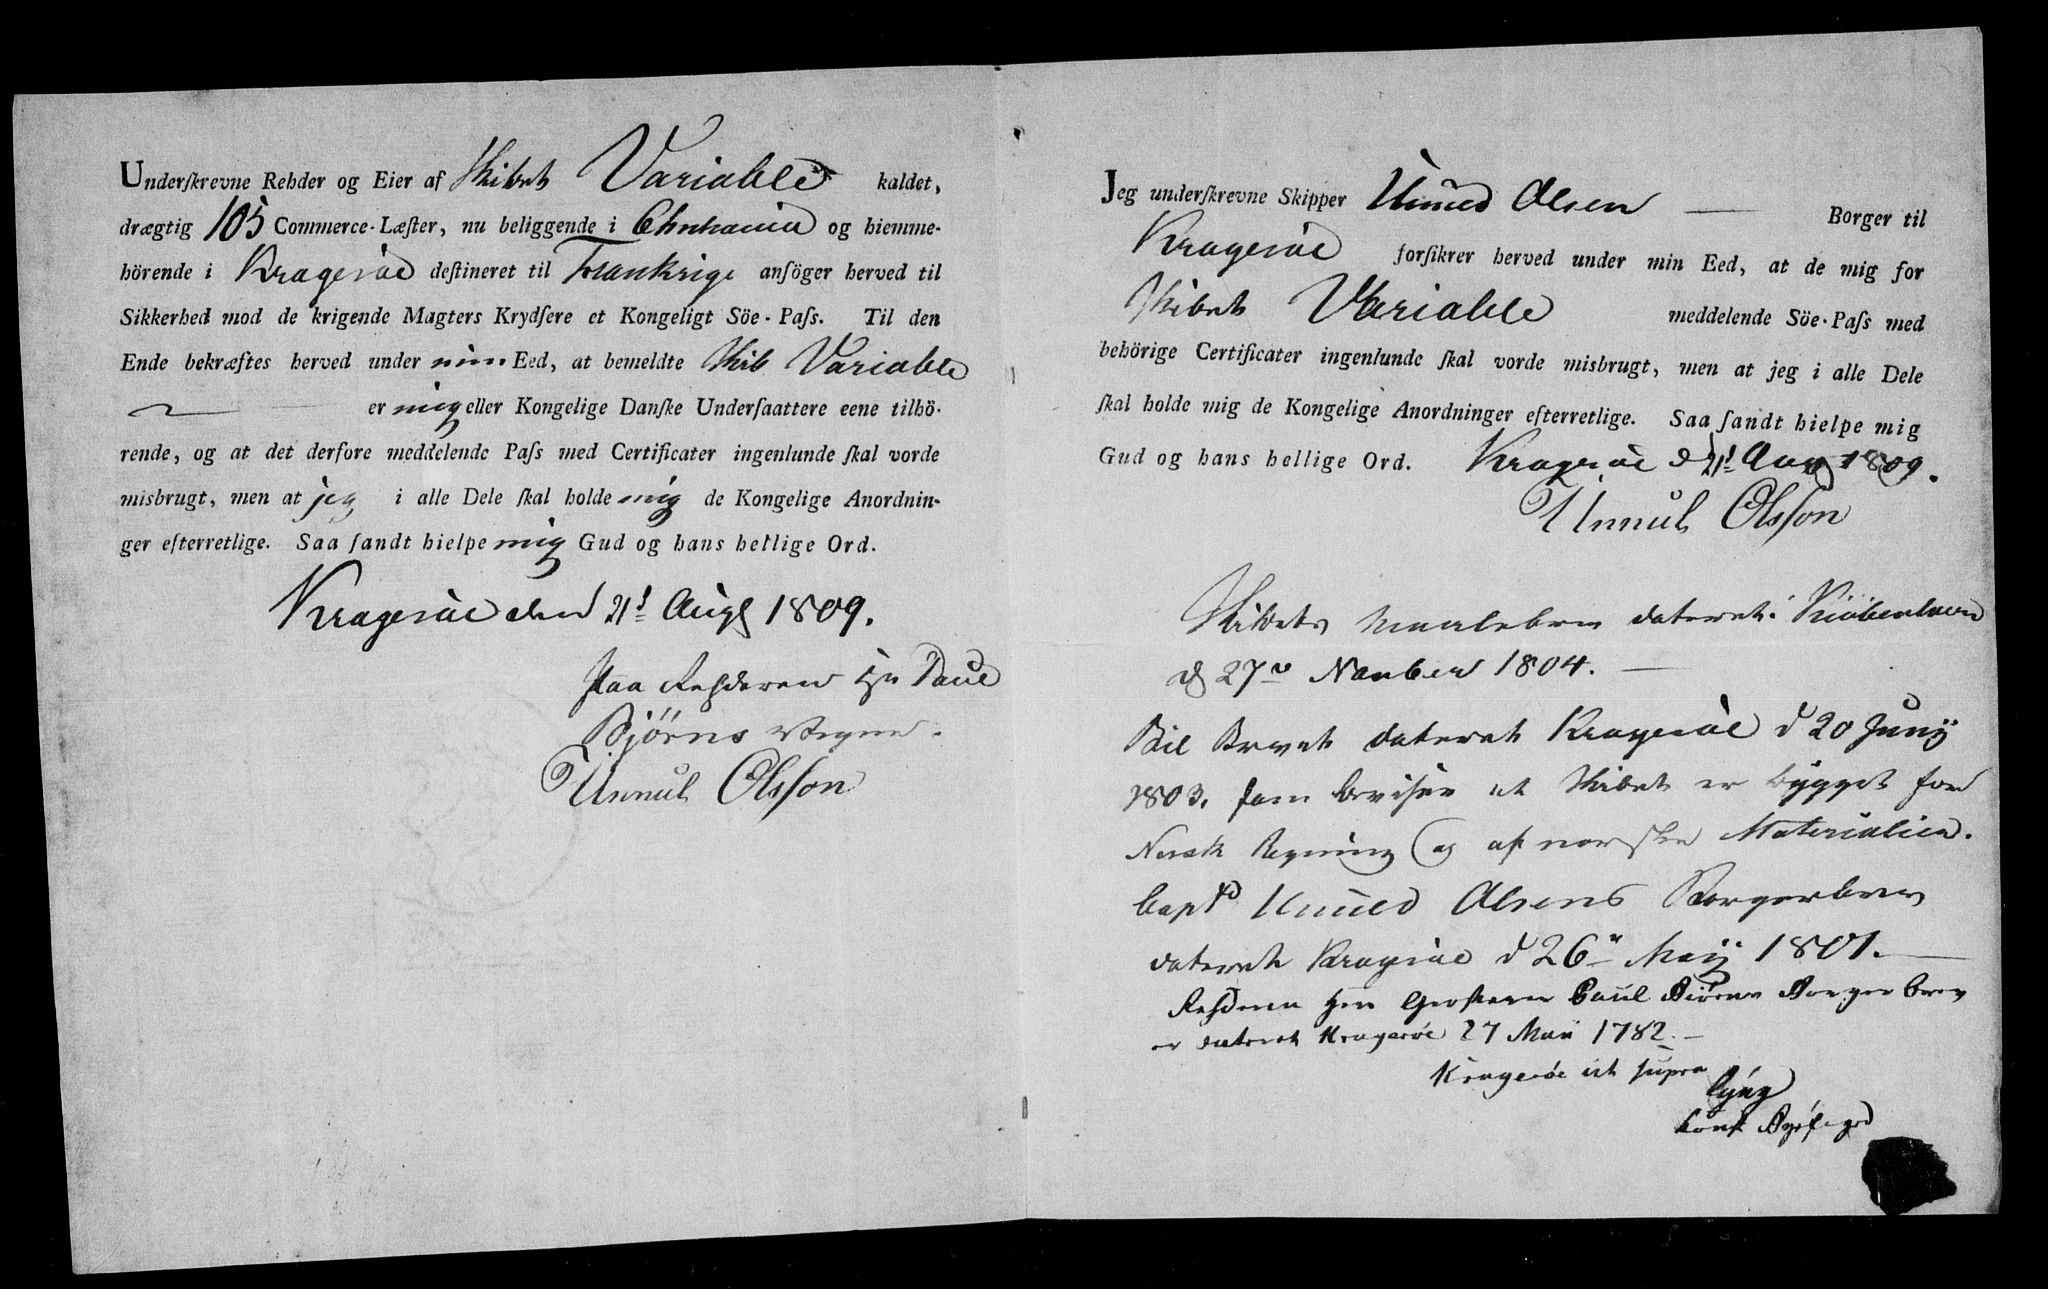 Underſkrevne Rehder og Eier af Skibet Variable kaldet,
drægtig 105 Commerce-Læſter, nu beliggende i Chrhania og hiemme-
hörende i Kragerøe deſtineret til Frankrige anſöger herved til
Sikkerhed mod de krigende Magters Krydſere et Kongeligt Söe-Paſs. Til den
Ende bekræftes herved under min Eed, at bemeldte Skib Variable
er mig eller Kongelige Danſke Underſaattere eene tilhö-
rende, og at det derfore meddelende Paſs med Certificater ingenlunde ſkal vorde
misbrugt, men at jeg i alle Dele ſkal holde mig de Kongelige Anordnin-
ger efterretlige. Saa ſandt hielpe mig Gud og hans hellige Ord.
Kragerøe den 21d Augt 1809.
Paa Rehderen Hr Paul
Bjørns Vegne.
Knnul Olsſon
Jeg underſkrevne Skipper Knud Olsen Borger til
Kragerøe forſikrer herved under min Eed, at de mig for
Skibet Variable meddelende Söe-Paſs med
behörige Certificater ingenlunde ſkal vorde misbrugt, men at jeg i alle Dele
ſkal holde mig de Kongelige Anordninger efterretlige. Saa ſandt hielpe mig
Gud og hans hellige Ord. Kragerøe d 21d Aug 1809.
Knnul Olsſon
Skibets Maalebrev dateret Kiøbenhavn
d 27de Novber 1804.
Bil Brevet dateret Kragerøe d 20 Junij
1803. som beviser at Skibet er bygget for
Norsk Regning og af norske Materialier.
Capt Knued Olsens Borgerbrev
dateret Kragerøe d 26 Maij 1801.
Rehderen Herr Paul Biørns Borgerbrev
er dateret Kragerøe 27 Maii 1782.
Kragerøe ut supra
Lyng
konst Byefoged